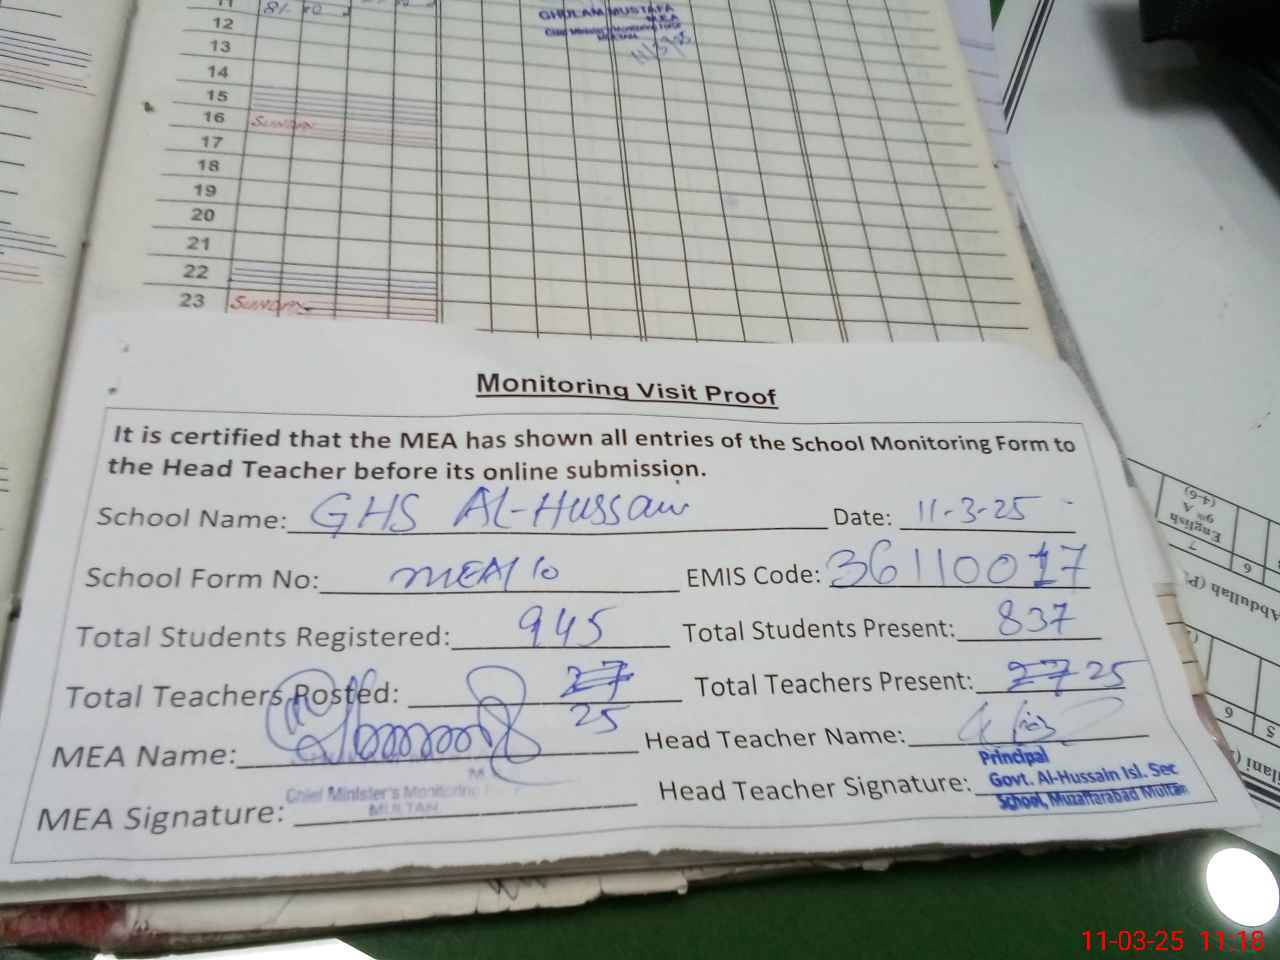 11
12
GHULAM MUSTAFA
MEA
MULTAN
13
14
15
16 SUNDAY
17
18
19
20
21
22
23 SUNDAY
Monitoring Visit Proof
It is certified that the MEA has shown all entries of the School Monitoring Form to
the Head Teacher before its online submission.
School Name: GHS AL-Hussain Date: 11-3-25
School Form No: MEA/10 EMIS Code: 36110017
Total Students Registered: 945 Total Students Present: 837
Total Teachers Posted: 27 Total Teachers Present: 27 25
25
MEA Name: Head Teacher Name:
Principal
Chief Minister's Monitoring
MULTAN
MEA Signature: Head Teacher Signature: Govt. Al-Hussain Isl. Sec
School, Muzaffarabad Multan
English
9th A
(4-6)
7
6
Abdullah
6
5
11-03-25 11:18